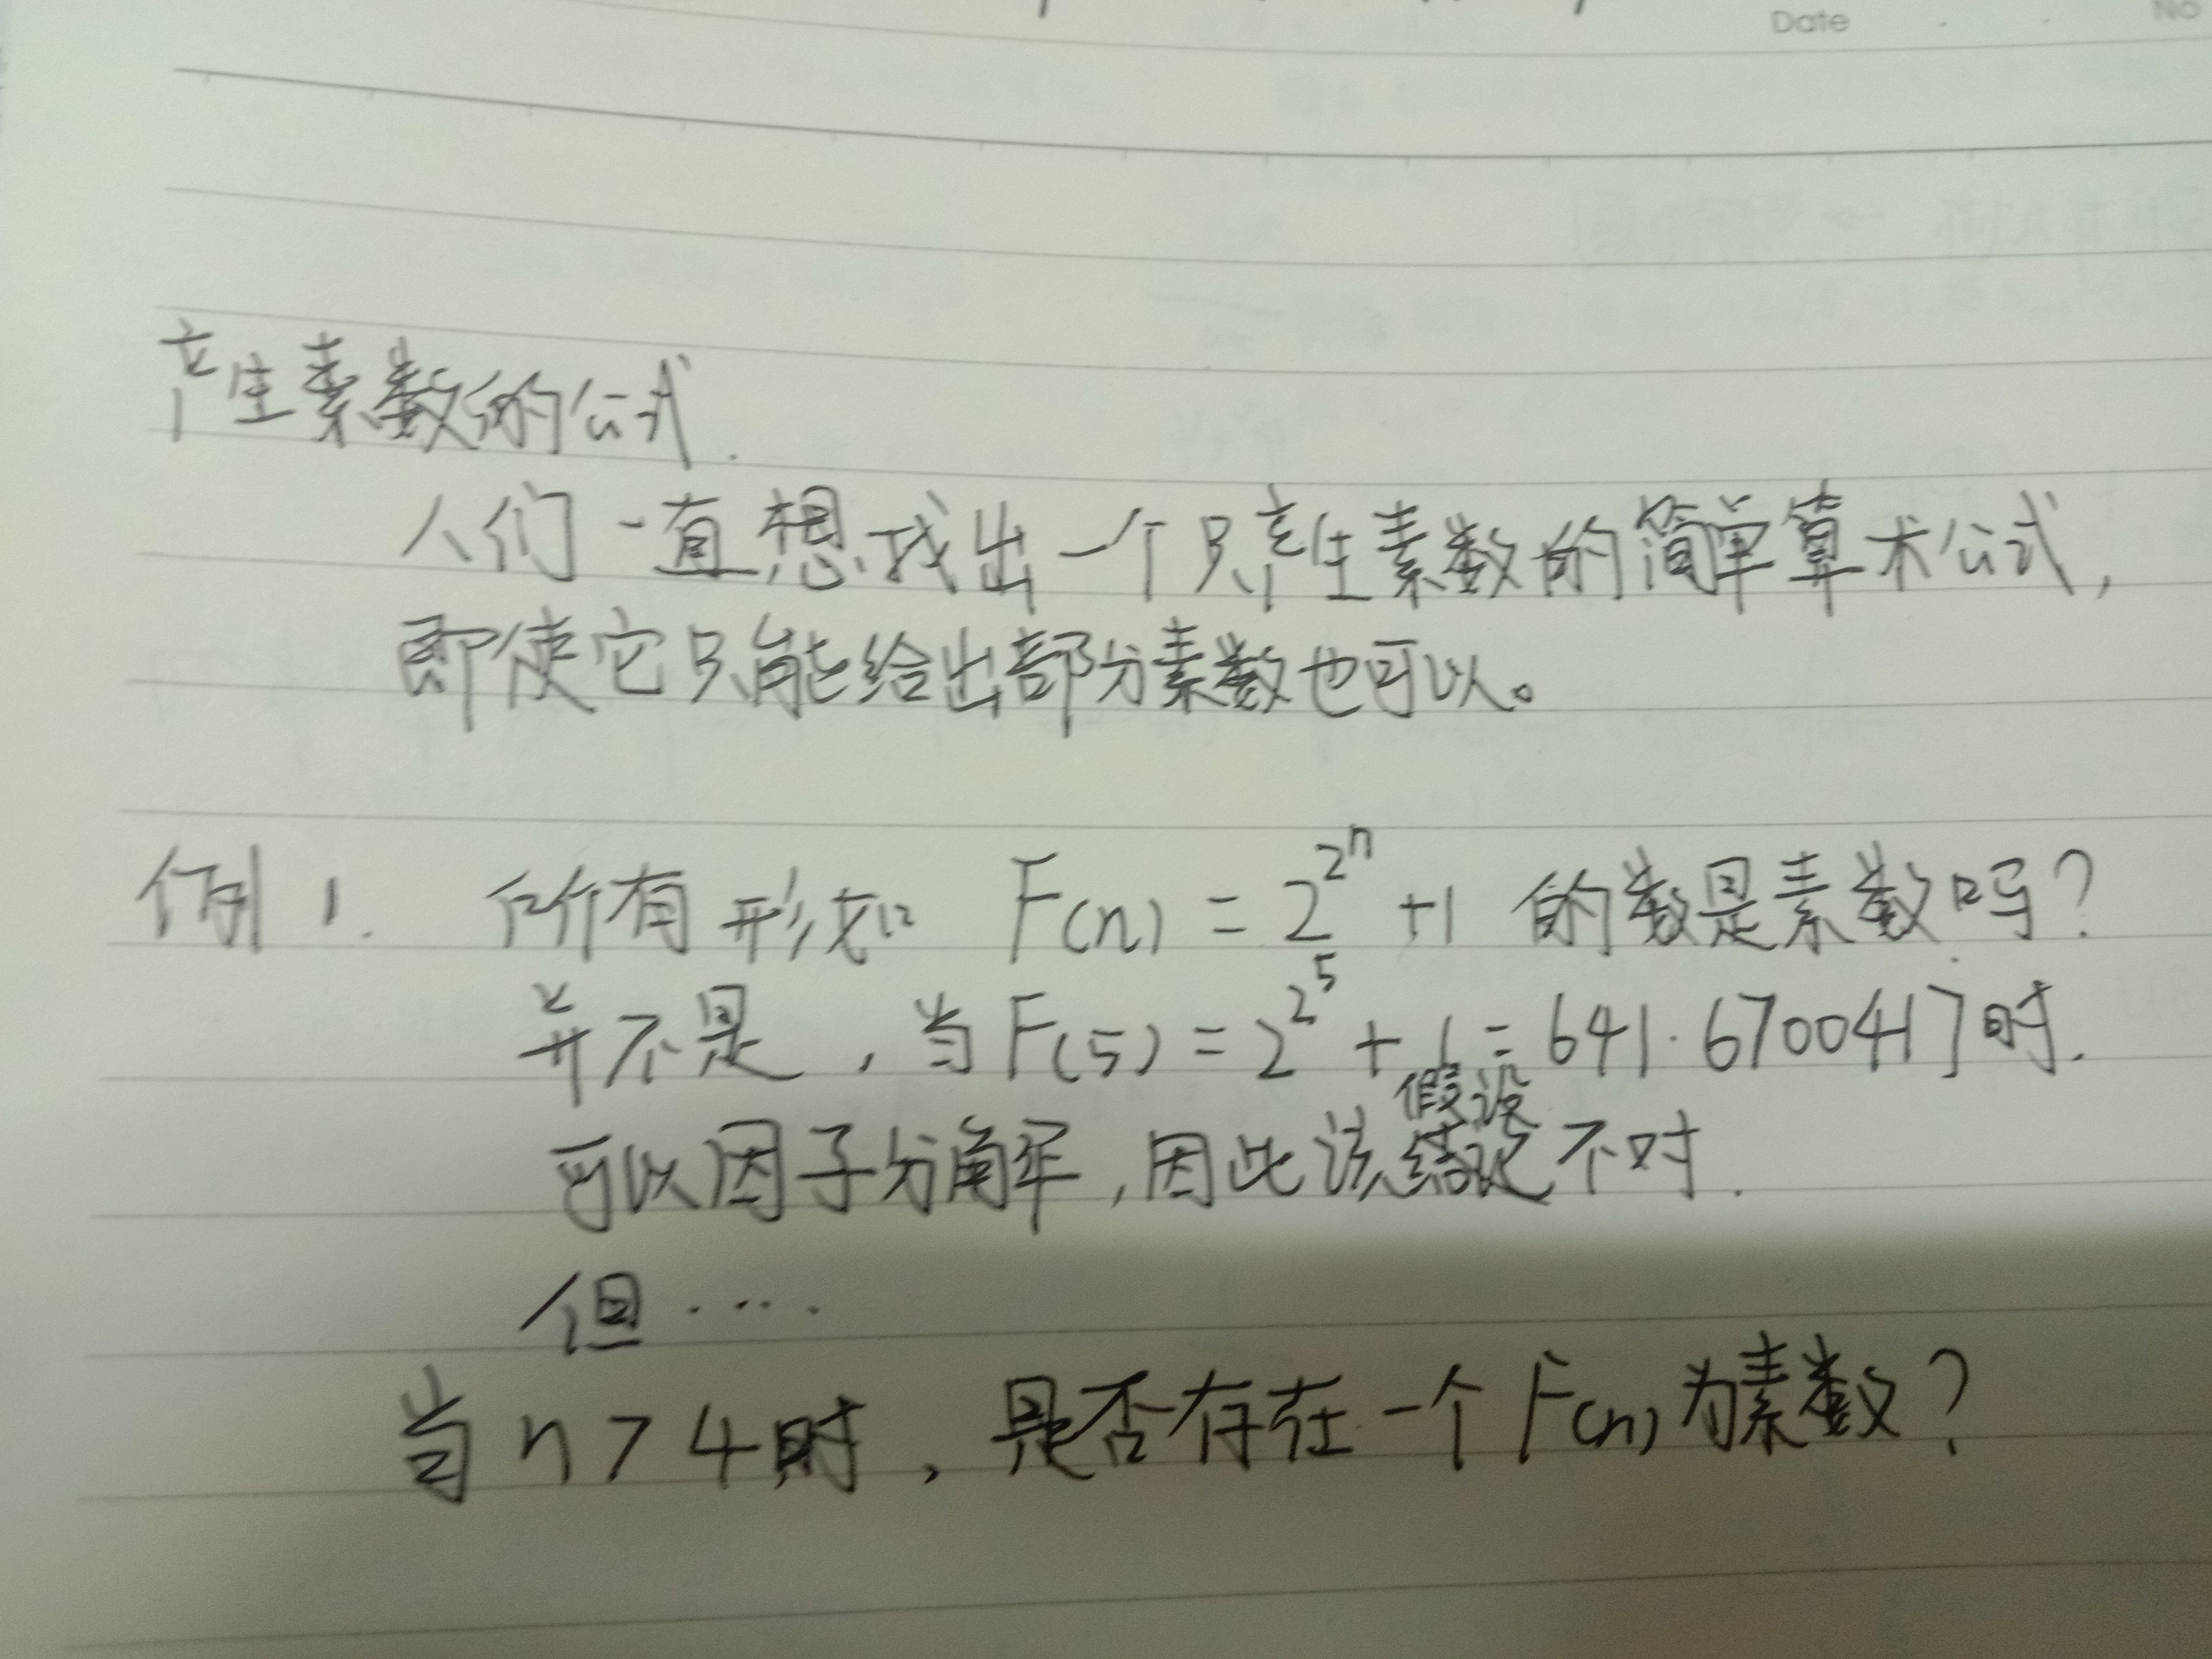 Date No
产生素数的公式.
人们一直想找出一个只产生素数的简单算术公式,
即使它只能给出部分素数也可以。
例1. 所有形如 F(n) = 2^{2^n} +1 的数是素数吗?
并不是,当F(5) = 2^{2^5} + 1 = 641·6700417时.
可以因子分解,因此该假设不对.
但·····
当n>4时,是否存在一个F(n)为素数?